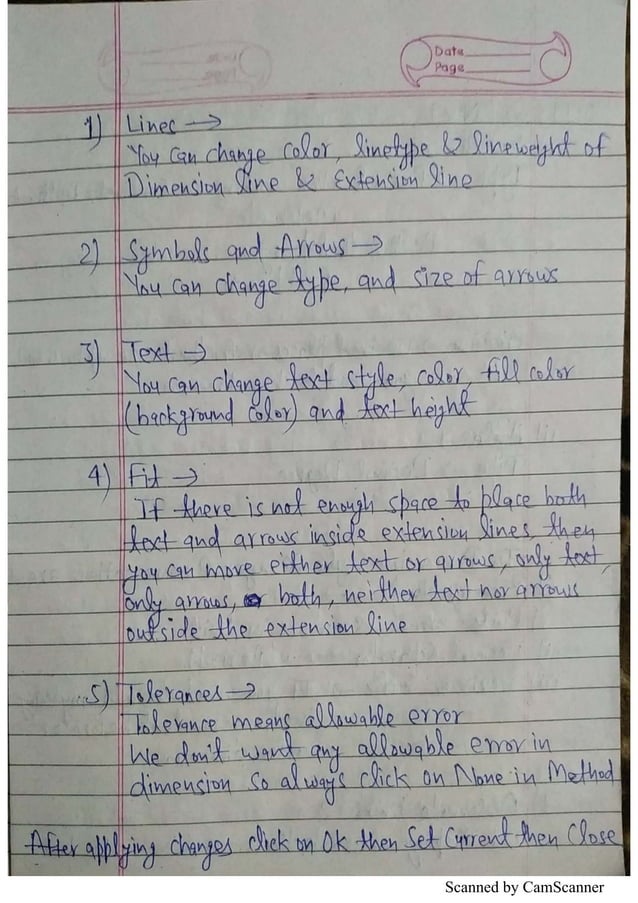 Date
Page
1) Lines →
You can change color, linetype & lineweight of
Dimension line & Extension line
2) Symbols and Arrows →
You can change type, and size of arrows
3) Text →
You can change text style, color, fill color
(background color) and text height
4) Fit →
If there is not enough space to place both
text and arrows inside extension lines, then
you can move either text or arrows, only text,
only arrows, both, neither text nor arrows
outside the extension line
5) Tolerances →
Tolerance means allowable error
We don't want any allowable error in
dimension so always click on None in Method
After applying changes click on Ok then Set Current then Close
Scanned by CamScanner